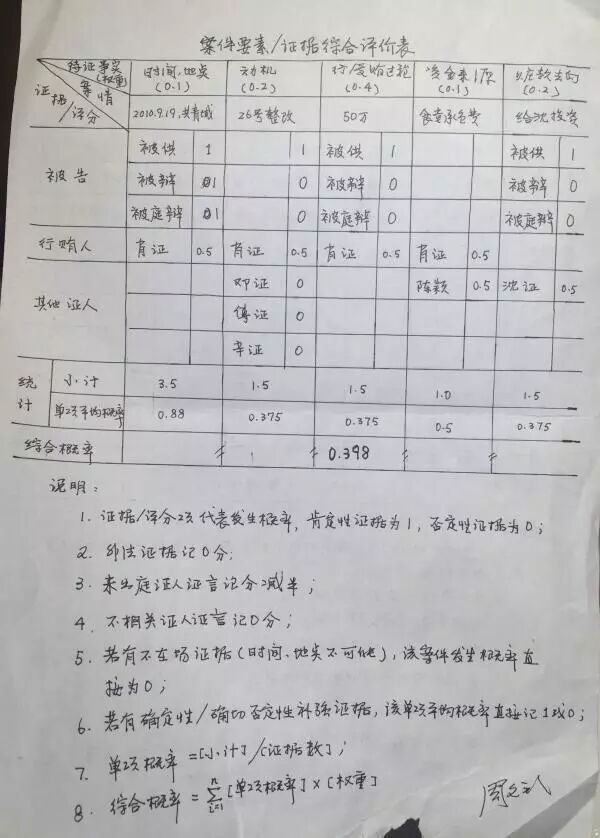 案件要素/证据综合评价表
待证事实(权重) 时间、地点(0.1) 动机(0.2) 行/受贿过程(0.4) 资金来源(0.1) 赃款去向(0.2)
案情
证据/评分 2010.9.19,共青城 26号整改 50万 食堂承包费 给沈投资
被告 被供 1 1 被供 1 被供 1
被辩 1 0 被辩 0 被辩 0
被庭辩 1 0 被庭辩 0 被庭辩 0
行贿人 肖证 0.5 肖证 0.5 肖证 0.5 肖证 0.5
其他证人 邓证 0 陈颖 0.5 沈证 0.5
傅证 0
辛证 0
统计 小计 3.5 1.5 1.5 1.0 1.5
单项平均概率 0.88 0.375 0.375 0.5 0.375
综合概率 0.398
说明:
1. 证据/评分项代表发生概率,肯定性证据为1,否定性证据为0;
2. 非法证据记0分;
3. 未出庭证人证言记分减半;
4. 不相关证人证言记0分;
5. 若有不在场证据(时间、地点不可能),该案件发生概率直
接为0;
6. 若有确定性/确切否定性补强证据,该单项平均概率直接记1或0;
7. 单项概率=[小计]/[证据数];
8. 综合概率=∑ⁿᵢ₌₁[单项概率]×[权重]